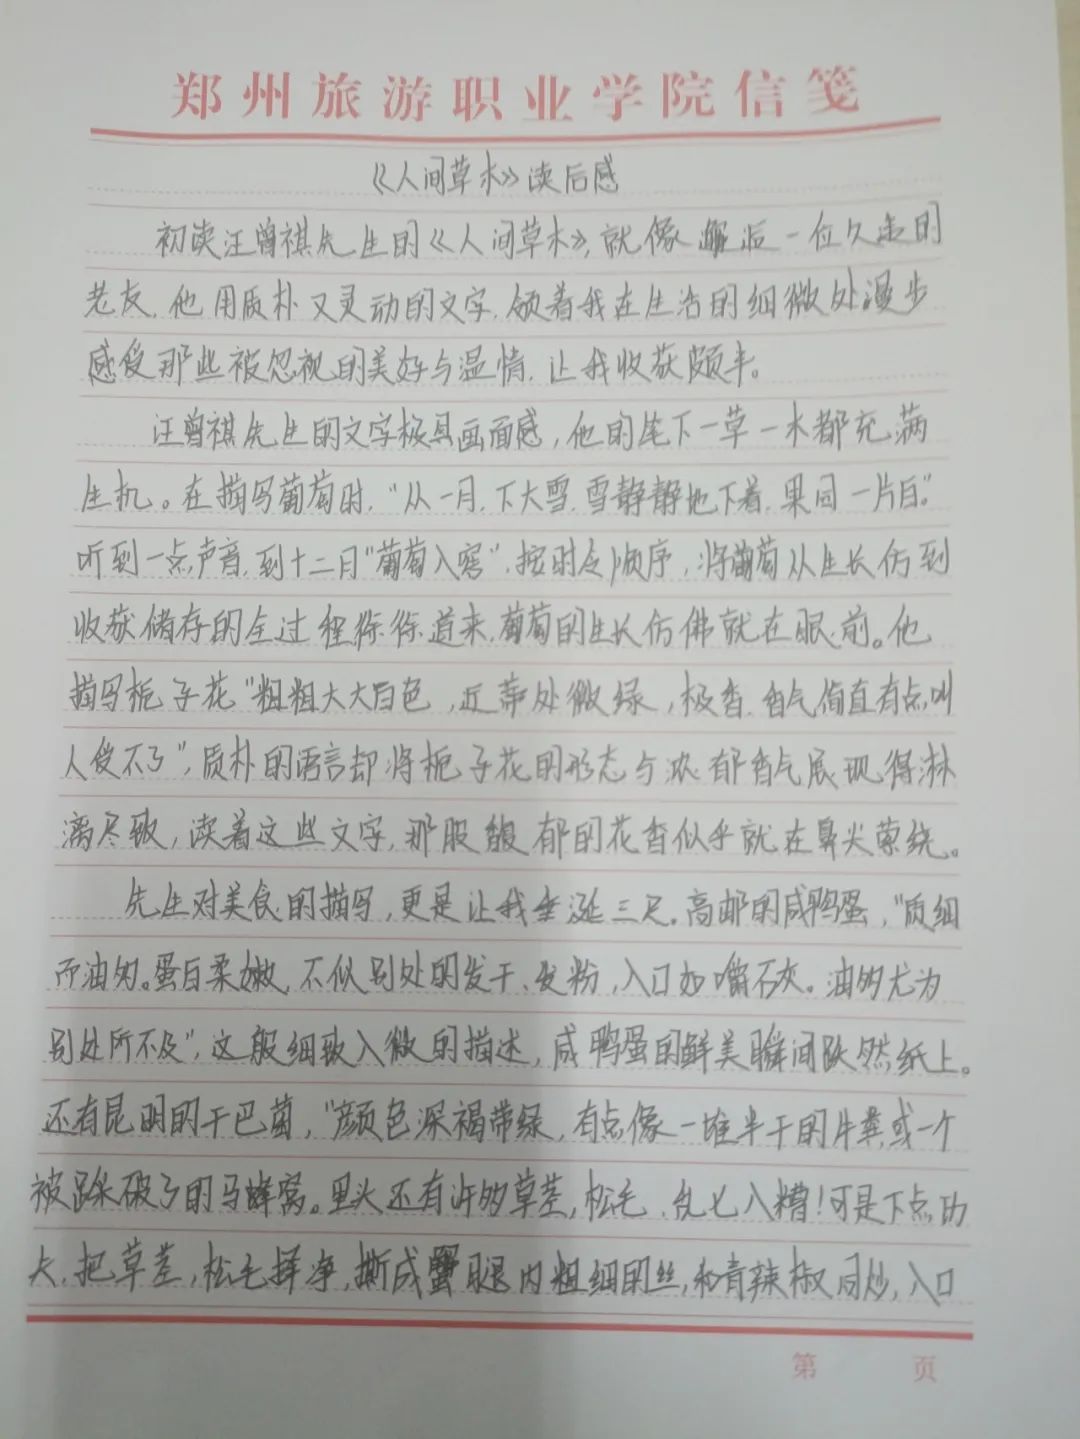 郑州旅游职业学院信笺
《人间草木》读后感
初读汪曾祺先生的《人间草木》,就像邂逅一位久违的
老友,他用质朴又灵动的文字,领着我在生活的细微处漫步
感受那些被忽视的美好与温情,让我收获颇丰。
汪曾祺先生的文字极具画面感,他的笔下一草一木都充满
生机。在描写葡萄时,"从一月,下大雪,雪静静地下着,果园一片白."
听到一点声音,到十二月"葡萄入窖",按时令顺序,将葡萄从生长仿到
收获储存的全过程徐徐道来,葡萄的生长仿佛就在眼前。他
描写栀子花"粗粗大大白色,近蒂处微绿,极香,香气简直有点叫
人受不了",质朴的语言却将栀子花的形态与浓郁香气展现得淋
漓尽致,读着这些文字,那股馥郁的花香似乎就在鼻尖萦绕。
先生对美食的描写,更是让我垂涎三尺.高邮的咸鸭蛋,"质细
而油多。蛋白柔嫩,不似别处的发干、发粉,入口如嚼石灰。油多尤为
别处所不及",这般细致入微的描述,咸鸭蛋的鲜美瞬间跃然纸上。
还有昆明的干巴菌,"颜色深褐带绿,有点像一堆半干的牛粪或一个
被踩破了的马蜂窝。里头还有许多草茎,松毛、乱七八糟!可是下点功
夫,把草茎,松毛择净,撕成蟹腿肉粗细的丝,和青辣椒同炒,入口
第 页